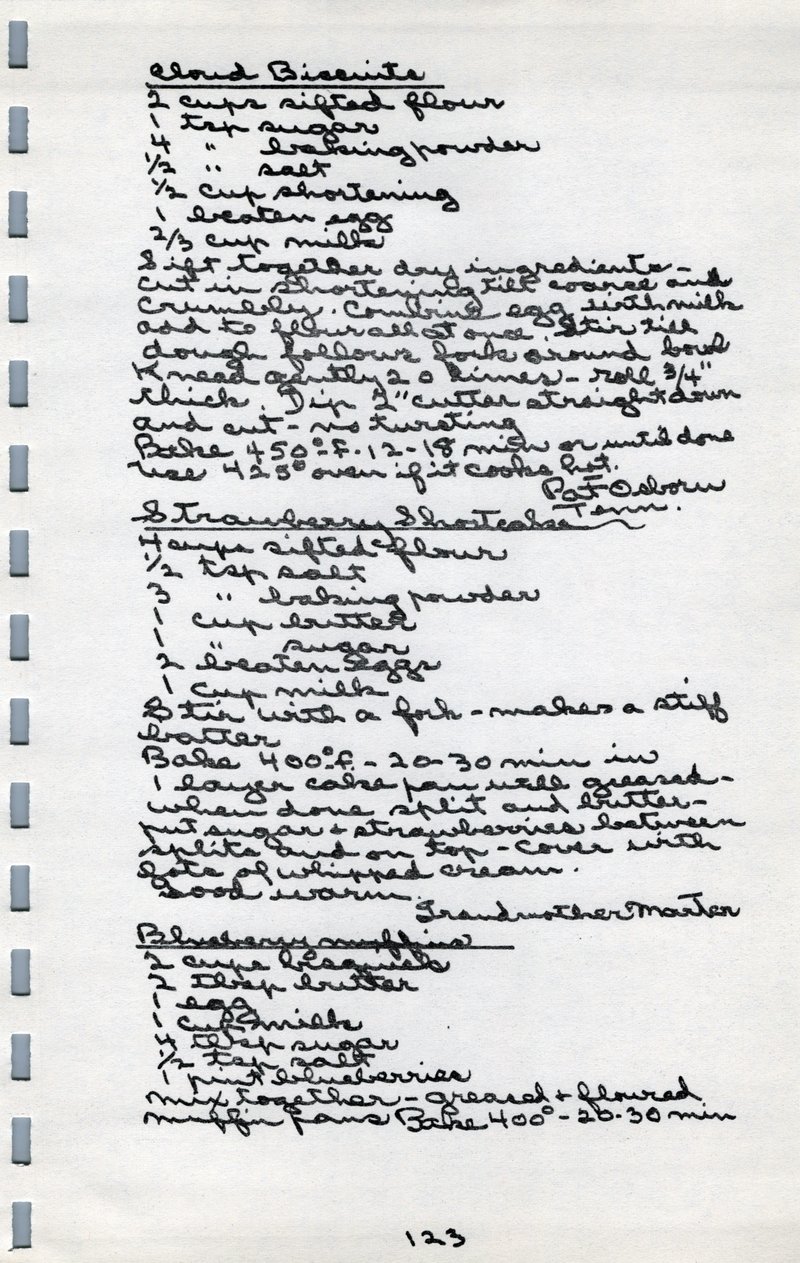 Cloud Biscuits
2 cups sifted flour
1 tsp sugar
4 " baking powder
1/2 " salt
1/2 cup shortening
1 beaten egg
2/3 cup milk
Sift together dry ingredients -
cut in shortening till coarse and
crumbly. Combine egg with milk
add to flour all at once. Stir till
dough follows fork around bowl
Knead gently 20 times - roll 3/4"
thick. Dip 2" cutter straight down
and cut - no tursting
Bake 450° F. 12-18 min or until done
use 425° oven if it cooks hot.
Pat Osborn
Tenn.
Strawberry Shortcake
4 cups sifted flour
1/2 tsp salt
3 " baking powder
1 cup butter
1 " sugar
2 beaten eggs
1 cup milk
Stir with a fork - makes a stiff
batter
Bake 400° F. - 20-30 min in
1 layer cake pan well greased -
when done split and butter -
put sugar + strawberries between
splits and on top - cover with
lots of whipped cream.
Good warm.
Grandmother Marter
Blueberry muffins
2 cups bisquick
2 tbsp butter
1 egg
1 cup milk
4 tbsp sugar
1/2 tsp salt
1 pint blueberries
mix together - greased + floured
muffin pans Bake 400° - 20-30 min
123